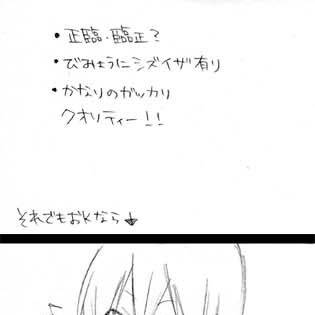 ・正臨・臨正？
・びみょうにシズイザ有り
・かなりのガッカリ
クオリティー!!
それでもおkなら↓